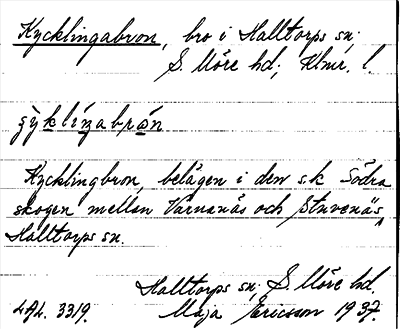 Kycklingabron, bro i Halltorps sn;
S. Möre hd; Klmr. l.
Kycklingbron, belägen i den s.k Södra
skogen mellan Värnanäs och Stuvenäs,
Halltorps sn.
Halltorps sn; S. Möre hd.
LAL. 3319. Maja Ericson 1937.